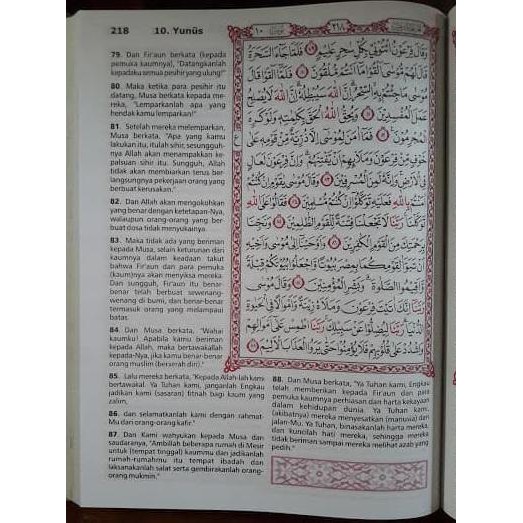 218 10. Yunūs
79. Dan Fir'aun berkata (kepada
pemuka kaumnya), "Datangkanlah
kepadaku semua pesihir yang ulung!"
80. Maka ketika para pesihir itu
datang, Musa berkata kepada me-
reka, "Lemparkanlah apa yang
hendak kamu lemparkan!"
81. Setelah mereka melemparkan,
Musa berkata, "Apa yang kamu
lakukan itu, itulah sihir, sesungguh-
nya Allah akan menampakkan ke-
palsuan sihir itu. Sungguh, Allah
tidak akan membiarkan terus ber-
langsungnya pekerjaan orang yang
berbuat kerusakan."
82. Dan Allah akan mengokohkan
yang benar dengan ketetapan-Nya,
walaupun orang-orang yang ber-
buat dosa tidak menyukainya.
83. Maka tidak ada yang beriman
kepada Musa, selain keturunan dari
kaumnya dalam keadaan takut
bahwa Fir'aun dan para pemuka
(kaum)nya akan menyiksa mereka.
Dan sungguh, Fir'aun itu benar-
benar telah berbuat sewenang-
wenang di bumi, dan benar-benar
termasuk orang yang melampaui
batas.
84. Dan Musa berkata, "Wahai
kaumku! Apabila kamu beriman
kepada Allah, maka bertawakallah
kepada-Nya, jika kamu benar-benar
orang muslim (berserah diri)."
85. Lalu mereka berkata, "Kepada Allah-lah kami
bertawakal. Ya Tuhan kami, janganlah Engkau
jadikan kami (sasaran) fitnah bagi kaum yang
zalim,
86. dan selamatkanlah kami dengan rahmat-
Mu dari orang-orang kafir."
87. Dan Kami wahyukan kepada Musa dan
saudaranya, "Ambillah beberapa rumah di Mesir
untuk (tempat tinggal) kaummu dan jadikanlah
rumah-rumahmu itu tempat ibadah dan
laksanakanlah salat serta gembirakanlah orang-
orang mukmin."
88. Dan Musa berkata, "Ya Tuhan kami, Engkau
telah memberikan kepada Fir'aun dan para
pemuka kaumnya perhiasan dan harta kekayaan
dalam kehidupan dunia. Ya Tuhan kami,
(akibatnya) mereka menyesatkan (manusia) dari
jalan-Mu. Ya Tuhan, binasakanlah harta mereka,
dan kuncilah hati mereka, sehingga mereka
tidak beriman sampai mereka melihat azab yang
pedih."
١٠ ٢١٨
وقال فرعون ائتوني بكل سحر عليم ٧٩ فلما جاء السحرة
قال لهم موسى القوا ما انتم ملقون ٨٠ فلما القوا قال
موسى ما جئتم به السحر ان الله سيبطله ان الله لا يصلح
عمل المفسدين ٨١ ويحق الله الحق بكلمته ولو كره
المجرمون ٨٢ فما امن لموسى الا ذرية من قومه على
خوف من فرعون وملايهم ان يفتنهم وان فرعون لعال
في الارض وانه لمن المسرفين ٨٣ وقال موسى يقوم ان كنتم
امنتم بالله فعليه توكلوا ان كنتم مسلمين ٨٤ فقالوا على الله
توكلنا ربنا لا تجعلنا فتنة للقوم الظلمين ٨٥ ونجنا
برحمتك من القوم الكفرين ٨٦ واوحينا الى موسى واخيه
ان تبوا لقومكما بمصر بيوتا واجعلوا بيوتكم قبلة
واقيموا الصلوة وبشر المؤمنين ٨٧ وقال موسى
ربنا انك اتيت فرعون وملاه زينة واموالا في الحيوة
الدنيا ربنا ليضلوا عن سبيلك ربنا اطمس على اموالهم
واشدد على قلوبهم فلا يؤمنوا حتى يروا العذاب الاليم ٨٨